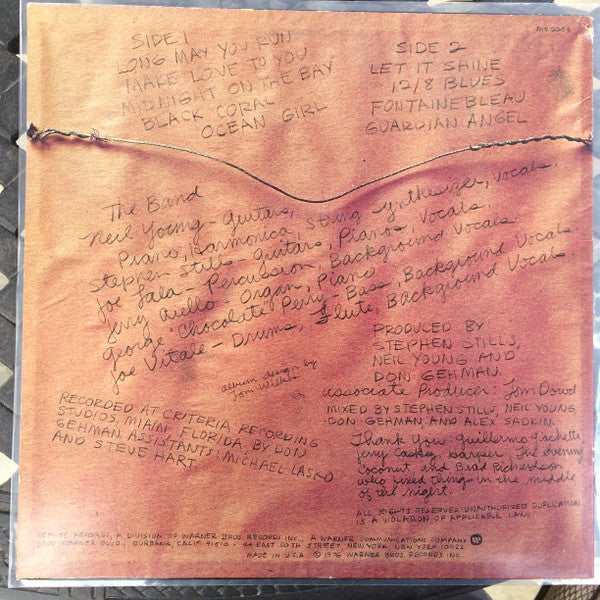 MS 2253
SIDE 1
LONG MAY YOU RUN
MAKE LOVE TO YOU
MIDNIGHT ON THE BAY
BLACK CORAL
OCEAN GIRL
SIDE 2
LET IT SHINE
12/8 BLUES
FONTAINEBLEAU
GUARDIAN ANGEL
The Band
Neil Young - Guitars,
Piano, Harmonica, String Synthesizer, Vocals.
Stephen Stills - Guitars, Pianos, Vocals.
Joe Lala - Percussion, Background Vocals
Jerry Aiello - Organ, Piano
George "Chocolate" Perry - Bass, Background Vocals
Joe Vitale - Drums, Flute, Background Vocals
album design by
Tom Wilkes
RECORDED AT CRITERIA RECORDING
STUDIOS, MIAMI, FLORIDA, BY DON
GEHMAN. ASSISTANTS: MICHAEL LASKO
AND STEVE HART.
PRODUCED BY
STEPHEN STILLS,
NEIL YOUNG AND
DON GEHMAN.
Associate Producer: Tom Dowd
MIXED BY STEPHEN STILLS, NEIL YOUNG,
DON GEHMAN AND ALEX SADKIN.
Thank You: Guillermo Giachetti
Jerry Caskey, Harper. The evening
Coconut and Brad Richardson
who fixed things in the middle
of the night.
ALL RIGHTS RESERVED UNAUTHORIZED DUPLICATION
IS A VIOLATION OF APPLICABLE LAWS.
REPRISE RECORDS, A DIVISION OF WARNER BROS RECORDS INC., A WARNER COMMUNICATIONS COMPANY
3300 WARNER BLVD., BURBANK, CALIF. 91510 • 44 EAST 50TH STREET, NEW YORK, NEW YORK 10022
MADE IN U.S.A. © 1976 WARNER BROS RECORDS INC.